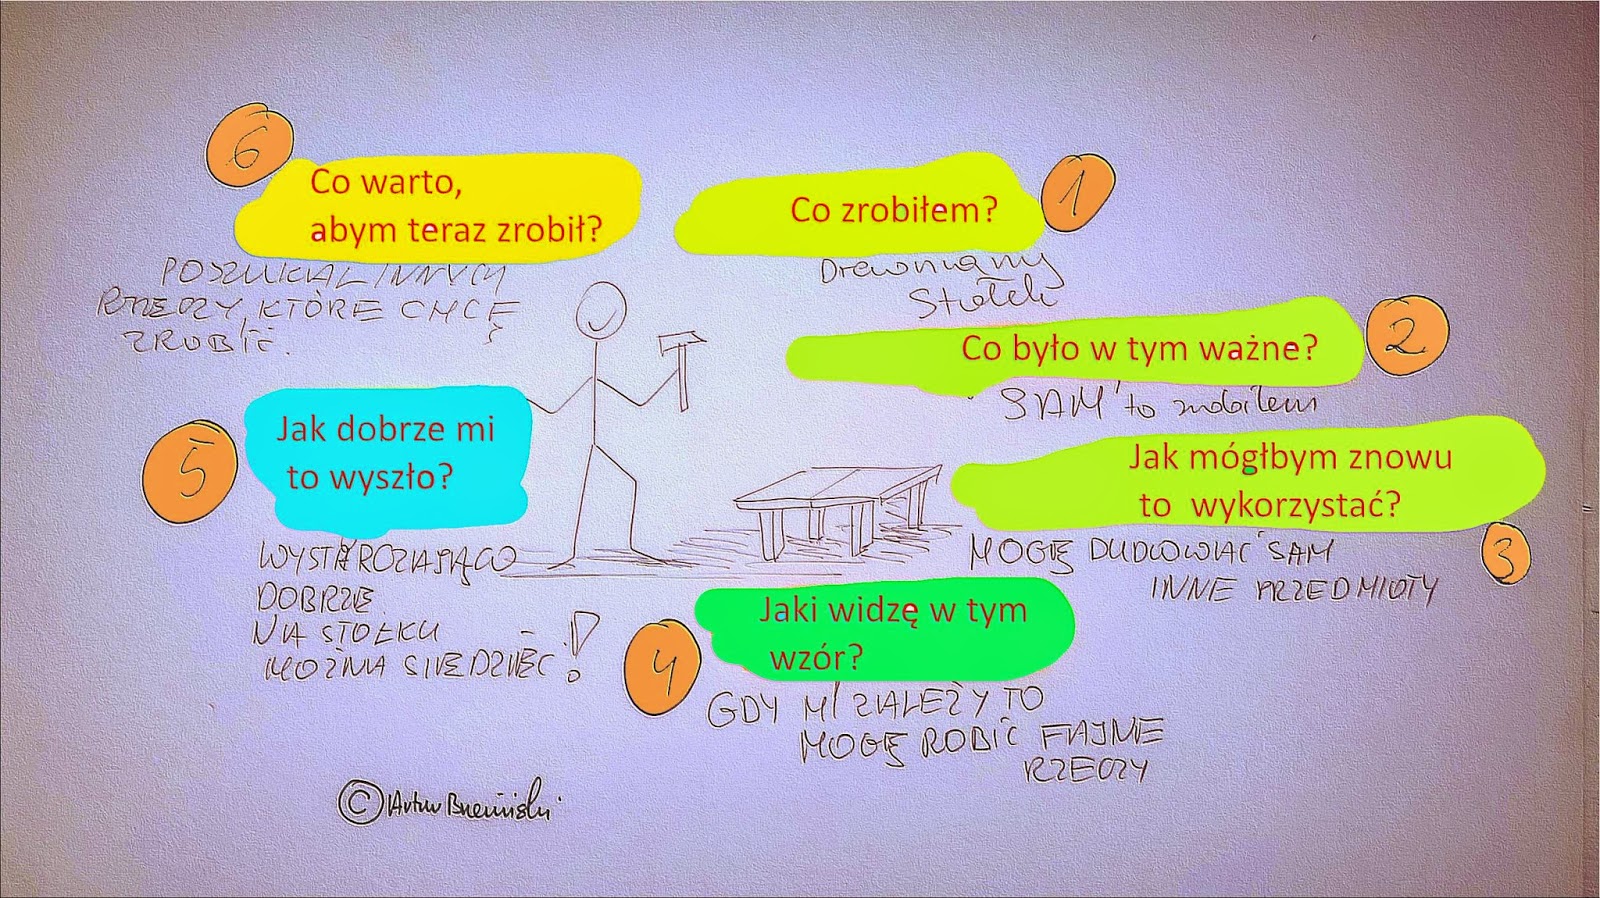 6
Co warto,
abym teraz zrobił?
POSZUKAŁ INNYCH
RZECZY, KTÓRE CHCĘ
ZROBIĆ.
1
Co zrobiłem?
Drewniany
Stołek
2
Co było w tym ważne?
"SAM" to zrobiłem
Jak mógłbym znowu
to wykorzystać?
3
MOGĘ BUDOWAĆ SAM
INNE PRZEDMIOTY
4
Jaki widzę w tym
wzór?
GDY MI ZALEŻY TO
MOGĘ ROBIĆ FAJNE
RZECZY
5
Jak dobrze mi
to wyszło?
WYSTARCZAJĄCO
DOBRZE
NA STOŁKU
MOŻNA SIEDZIEĆ!
© Artur